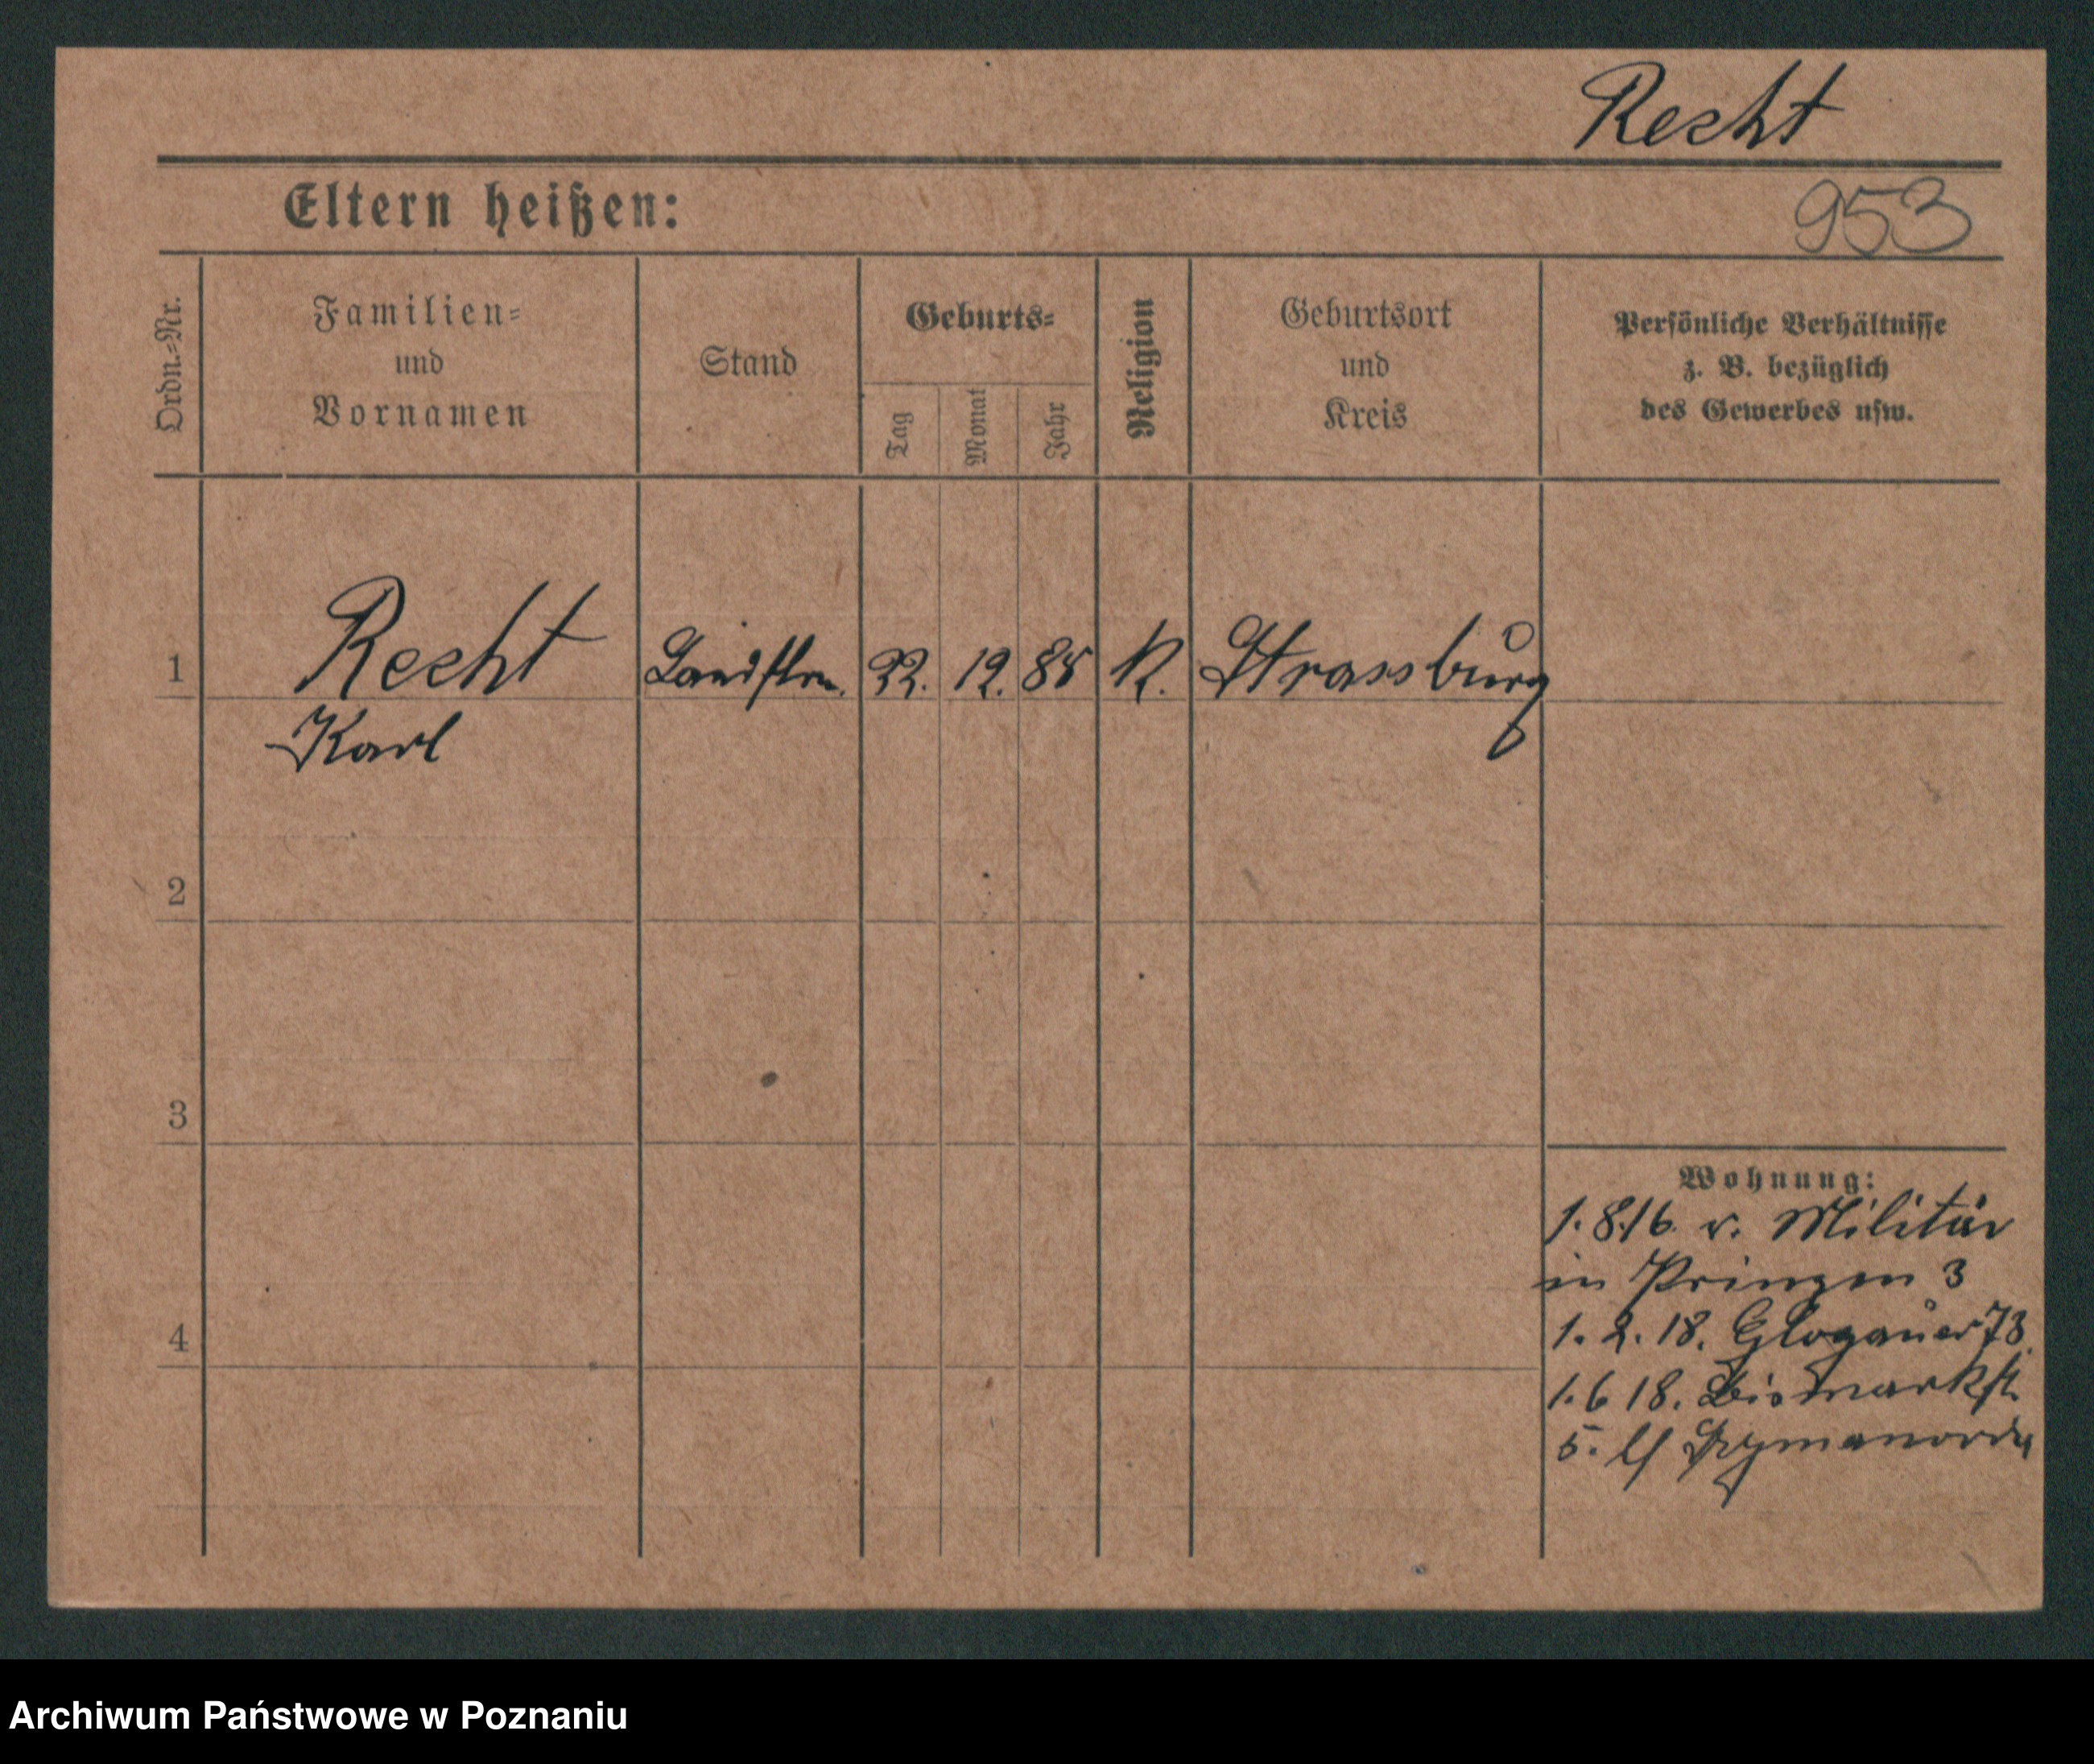 Recht
Eltern heißen:
953
Ordn.-Nr.
Familien-
und
Vornamen
Stand
Geburts-
Tag
Monat
Jahr
Religion
Geburtsort
und
Kreis
Persönliche Verhältnisse
z. B. bezüglich
des Gewerbes usw.
1 Recht Landstrm. 22. 12. 85 K. Strassburg
Karl
2
3
4
Wohnung:
1. 8.16. v. Militär
in Prinzen 3
1. 2. 18. Glogauer 73.
1. 6 18. Bismarkst.
5.
Archiwum Państwowe w Poznaniu